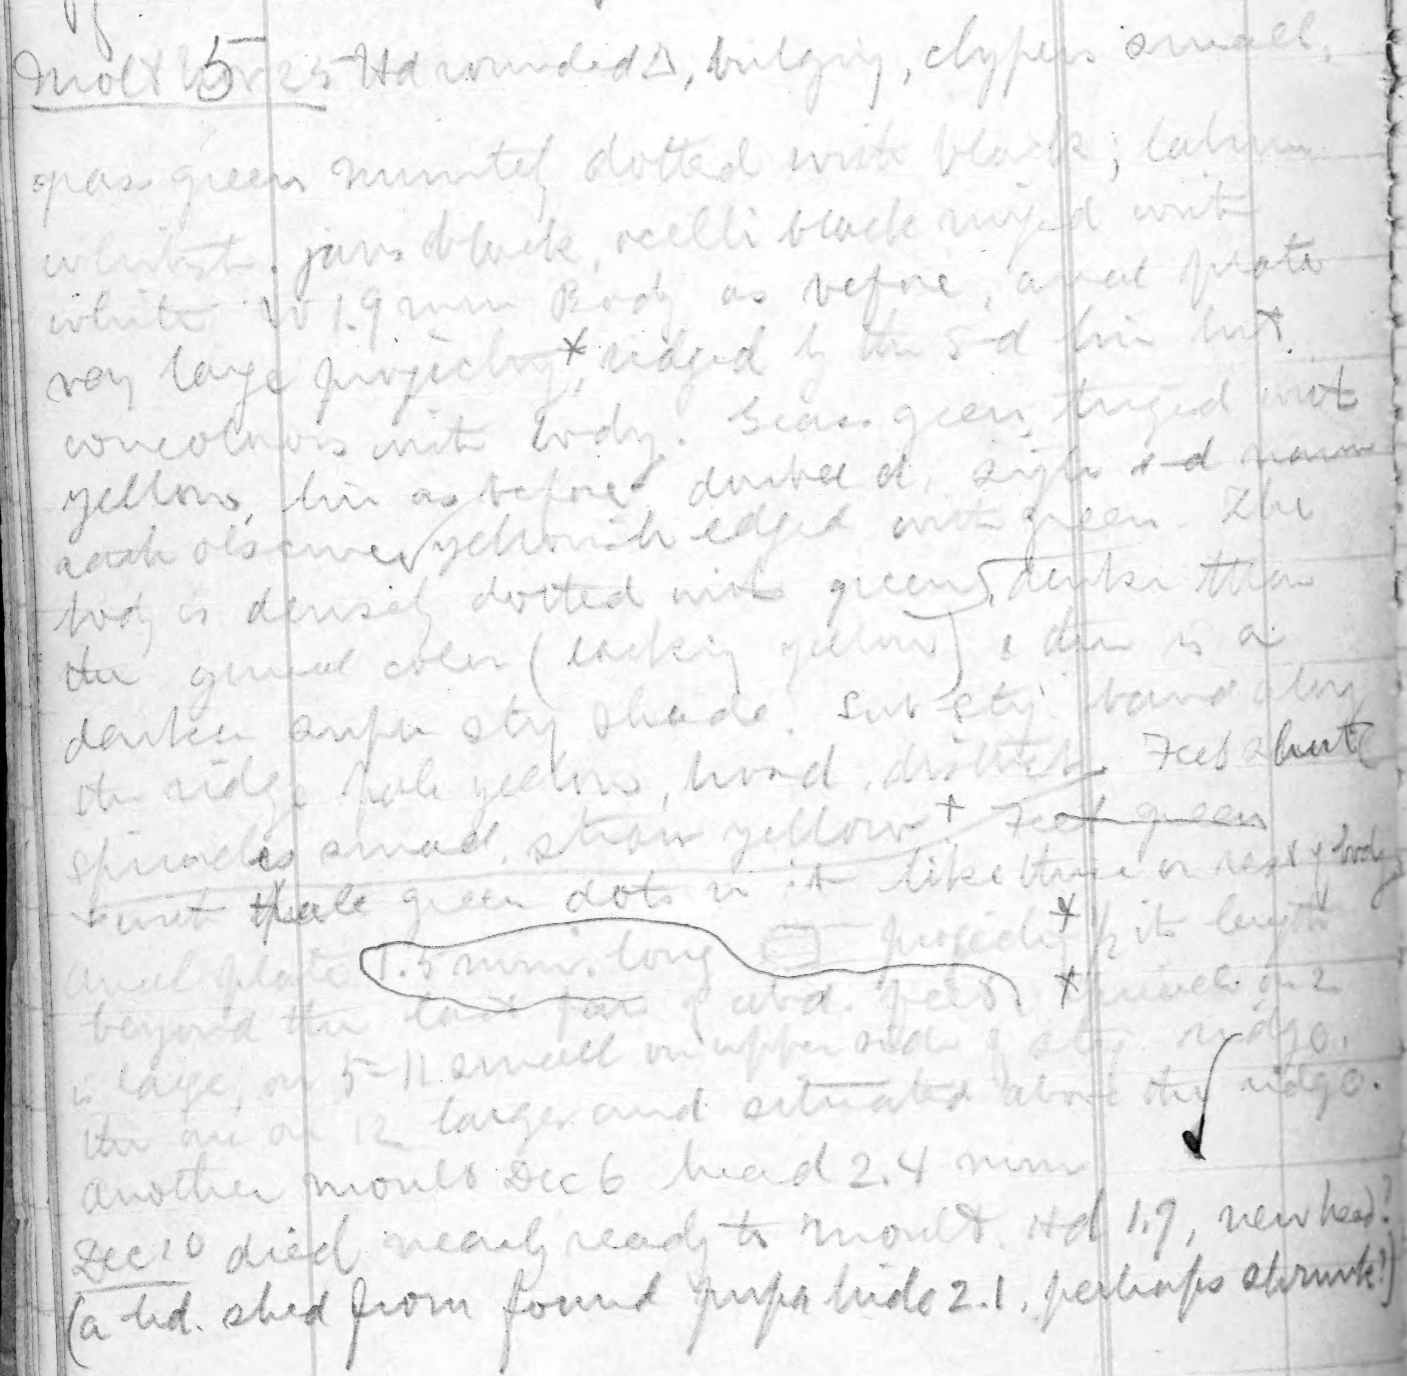 Molt 5 25 Hd rounded △, bulging, clypeus small,
grass green minutely dotted with black; labrum
whitish. jaws black, ocelli black ringed with
white w 1.9 mm Body as before, anal plate
very large projecting ×, ridged by the s-d line but
concolorous with body. Grass green, tinged with
yellow, line as before double d, single s-d narrow
each obscure yellowish edged with green. The
body is densely dotted with green, darker than
the general color (lacking yellow) & there is a
darker supra stig shade. Sub stig. band along
the ridge pale yellow, broad, distinct. Feet short
spiracles small straw yellow + Feet green
with pale green dots in it like those on rest of body
anal plate 1.5 mm. long projects × ½ its length
beyond the last pair of abd. feet. × on 2
is large, on 5-11 small on upper side of stig. ridge,
the one on 12 larger and situated above the ridge.
Another moult Dec 6 head 2.4 mm
Dec 10 died nearly ready to moult. Hd 1.9, new head?
(a hd. shed from found pupa hide 2.1, perhaps shrunk?)